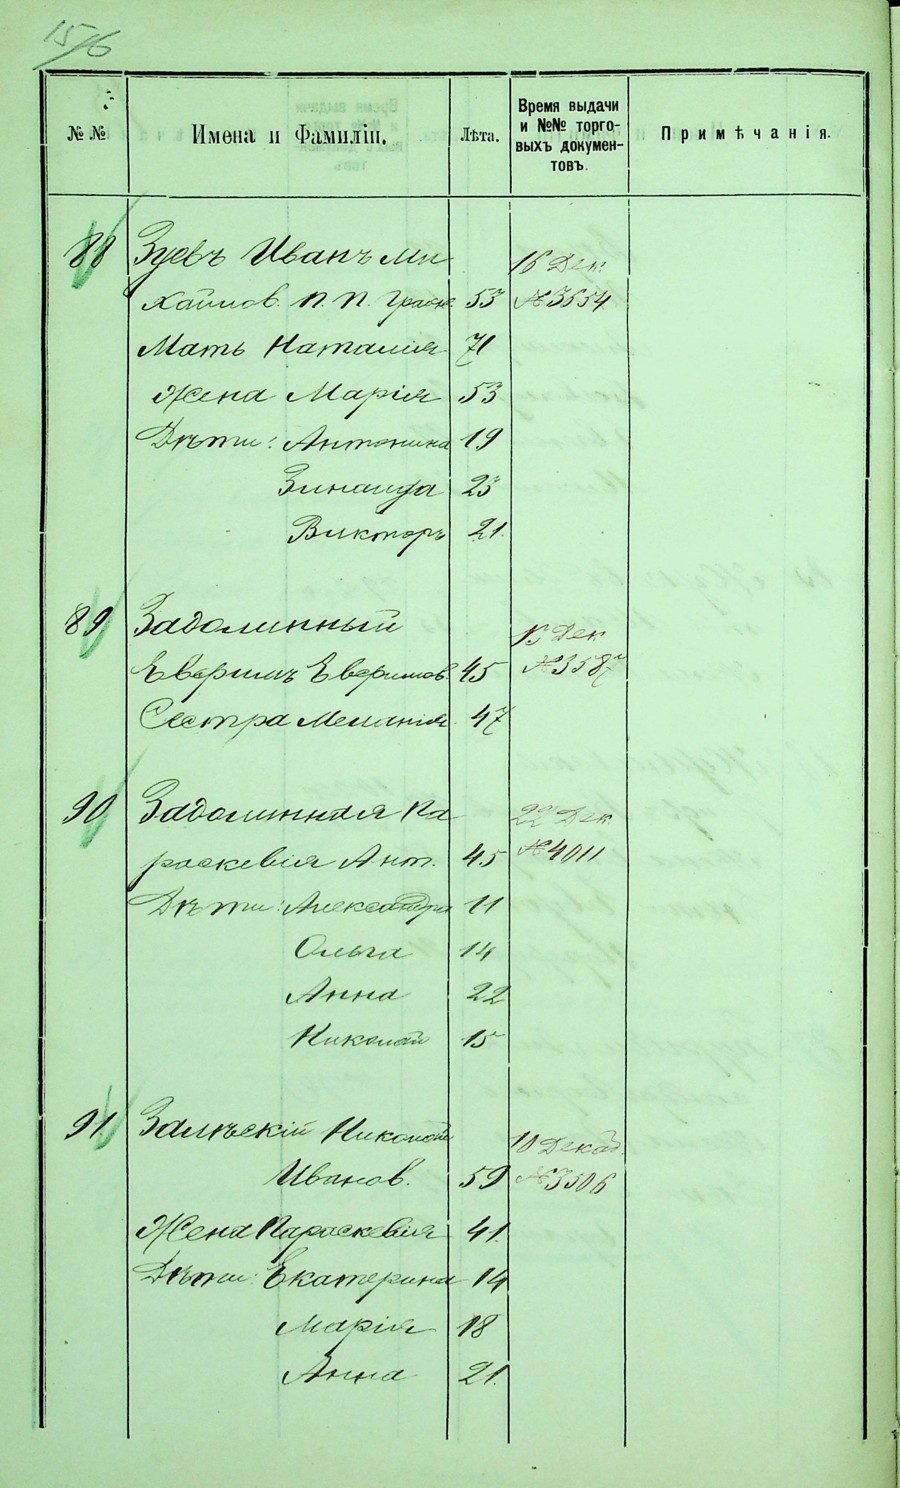 15/6
№№ Имена и Фамиліи. Лѣта. Время выдачи и №№ торго-выхъ докумен-товъ. Примѣчанія.
88 Зуевъ Иванъ Ми
хайлов. П. П. Граж. 53
16 Дек.
№3654
Мать Наталія 71
Жена Марія 53
Дѣти: Антонина 19
Зинаида 23
Викторъ 21.
89 Задолинный
15 Дек
Евфимъ Евфимов. 45 №3587
Сестра Меланія 47
90 Задолинная Па
раскевія Ант. 45
22 Дек
№4011
Дѣти: Александра 11
Ольга 14
Анна 22
Николай 15
91. Залѣскій Николай
Иванов. 59
10 Декаб.
№3506
Жена Параскевія 41.
Дѣти: Екатерина 14
Марія 18
Анна 21.